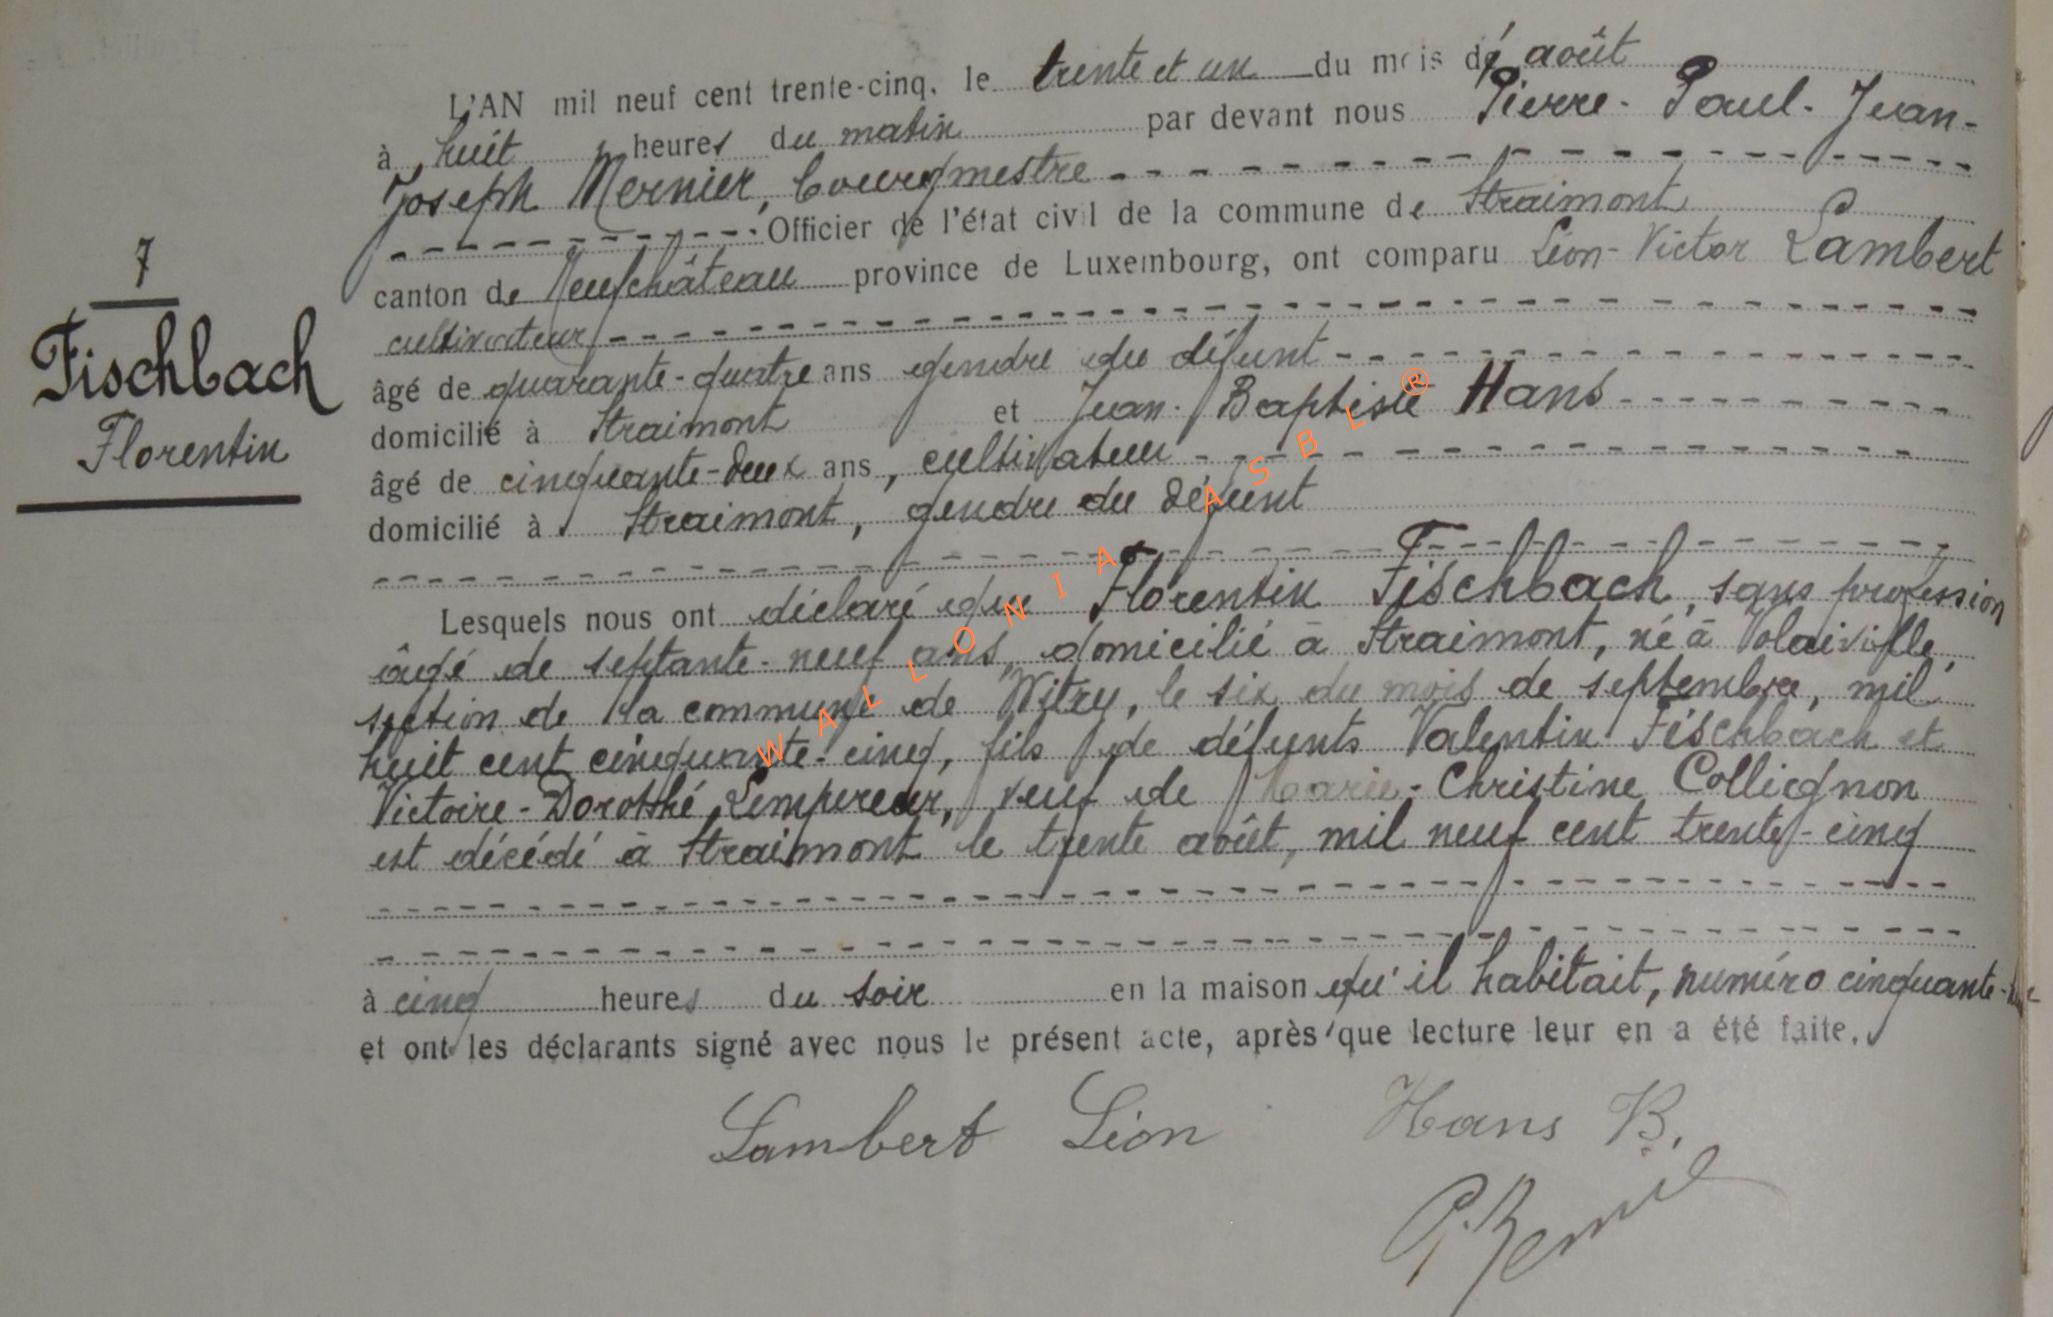 7
Fischbach
Florentin
L'AN mil neuf cent trente-cinq, le trente et un du mois de août
à huit heures du matin par devant nous Pierre-Paul-Jean-
Joseph Mernier, bourgmestre
Officier de l'état civil de la commune de Straimont
canton de Neufchâteau province de Luxembourg, ont comparu Léon-Victor Lambert
cultivateur
âgé de quarante-quatre ans gendre du défunt
domicilié à Straimont et Jean-Baptiste Hans
âgé de cinquante-deux ans, cultivateur
domicilié à Straimont, gendre du défunt
Lesquels nous ont déclaré que Florentin Fischbach, sans profession
âgé de septante-neuf ans, domicilié à Straimont, né à Volaiville,
section de la commune de Witry, le six du mois de septembre, mil
huit cent cinquante-cinq, fils de défunts Valentin Fischbach et
Victoire-Dorothé Lempereur, veuf de Marie-Christine Collignon
est décédé à Straimont le trente août, mil neuf cent trente-cinq
à cinq heures du soir en la maison qu'il habitait, numéro cinquante-
et ont les déclarants signé avec nous le présent acte, après que lecture leur en a été faite.
Lambert Léon Hans B.
WALLONIA ASBL®